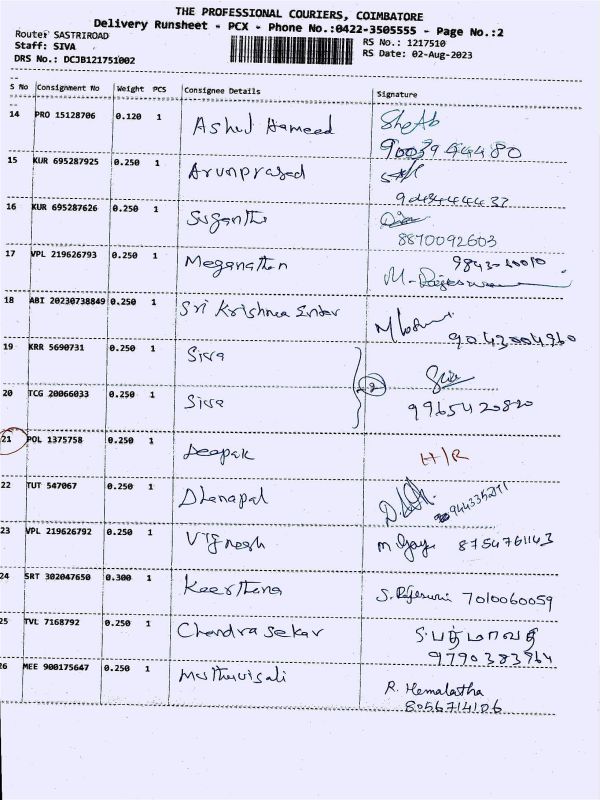 THE PROFESSIONAL COURIERS, COIMBATORE
Delivery Runsheet - PCX - Phone No.:0422-3505555 - Page No.:2
Route: SASTRIROAD
Staff: SIVA
DRS No.: DCJB121751002
RS No.: 1217510
RS Date: 02-Aug-2023
S No Consignment No Weight PCS Consignee Details Signature
14 PRO 15128706 0.120 1 Ashul Hameed
15 KUR 695287925 0.250 1 Arunprasad
16 KUR 695287626 0.250 1 Suganthi
8870092603
17 VPL 219626793 0.250 1 Meganathan
18 ABI 20230738849 0.250 1 Sri Krishna
9043004960
19 KRR 5690731 0.250 1 Siva
20 TCG 20066033 0.250 1 Siva 2
9965420820
21 POL 1375758 0.250 1 Deepak H/R
22 TUT 547067 0.250 1 Dhanapal
23 VPL 219626692 0.250 1 Vignesh 8754761143
24 SRT 302047650 0.300 1 Keerthana S. Rajeswari 7010060059
25 TVL 7168792 0.250 1 Chandra sekar S. பத்மாவதி
9790383964
26 MEE 900175647 0.250 1 R. Hemalatha
8056714106